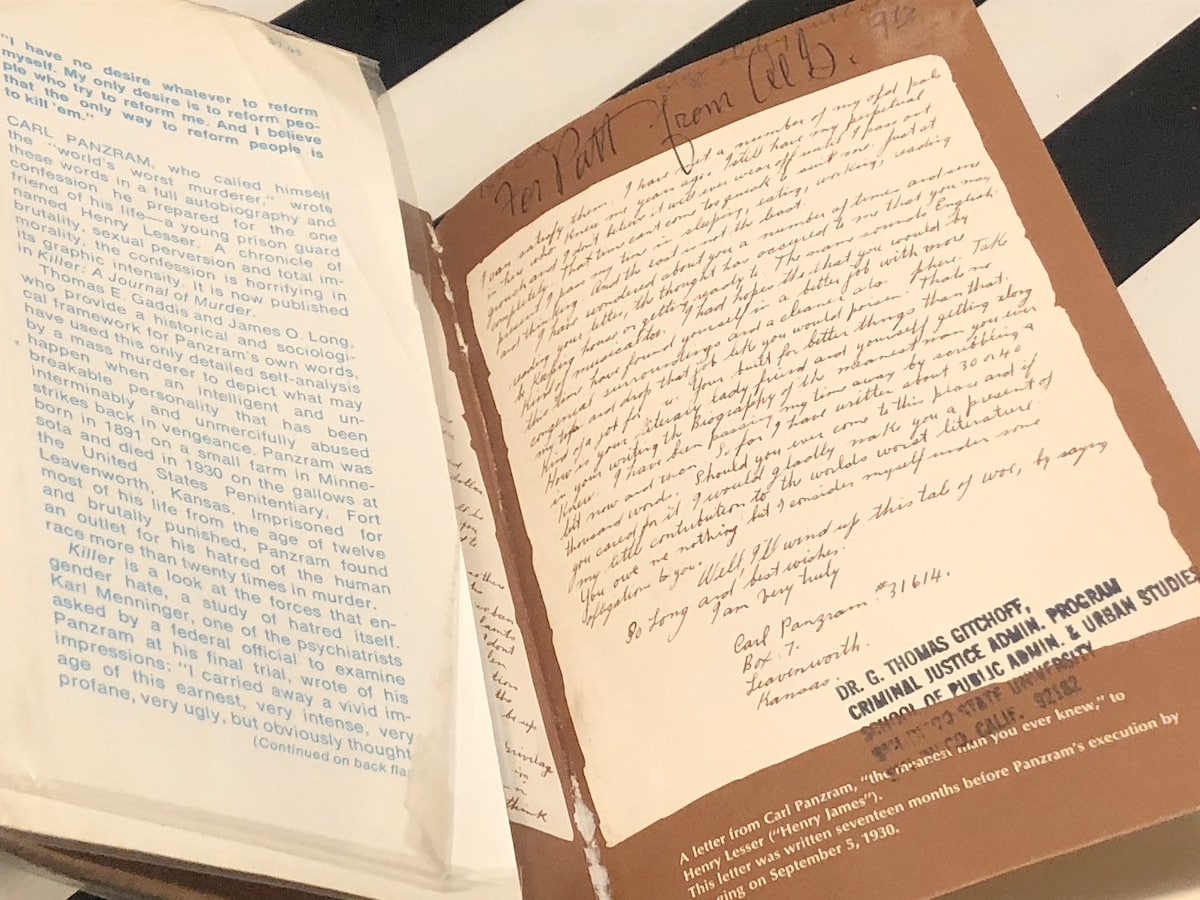 "I have no desire whatever to reform
myself. My only desire is to reform peo-
ple who try to reform me. And I believe
that the only way to reform people is
to kill 'em."
CARL PANZRAM, who called himself
the "world's worst murderer," wrote
these words in a full autobiography and
confession he prepared for the one
friend of his life—a young prison guard
named Henry Lesser. A chronicle of
brutality, sexual perversion and total im-
morality, the confession is horrifying in
its graphic intensity. It is now published
in Killer: A Journal of Murder.
Thomas E. Gaddis and James O. Long,
who provide a historical and sociologi-
cal framework for Panzram's own words,
have used this only detailed self-analysis
by a mass murderer to depict what may
happen when an intelligent and un-
breakable personality that has been
interminably and unmercifully abused
strikes back in vengeance. Panzram was
born in 1891 on a small farm in Minne-
sota and died in 1930 on the gallows at
the United States Penitentiary, Fort
Leavenworth, Kansas. Imprisoned for
most of his life from the age of twelve
and brutally punished, Panzram found
an outlet for his hatred of the human
race more than twenty times in murder.
Killer is a look at the forces that en-
gender hate, a study of hatred itself.
Karl Menninger, one of the psychiatrists
asked by a federal official to examine
Panzram at his final trial, wrote of his
impressions: "I carried away a vivid im-
age of this earnest, very intense, very
profane, very ugly, but obviously thought
(Continued on back fla
For Patt from
I can satisfy them. I have met a number of my old pals
in here who knew me years ago. I still have my perpetual
grouch and I don't believe it will ever wear off until I pass out
completely. That time cant come to quick to suit me. Just at
present I pass my time in sleeping, eating, working, reading
and thinking. And the last is not the least.
I have wondered about you a number of times and since
reading your letter, the thought has occured to me that you may
be keeping house or getting ready to. The name sounds English
kind of musical to. I had hopes tho that you would by
this time have found yourself in a better job with more
congenial surroundings and a cleaner atmosphere. Take
my tip and drop that job like you would poison. Thats no
kind of a job for you. Your built for better things than that.
How is your literary lady friend and yourself getting along
in your writing the Biography of the meanest man you ever
knew. I have been passing my time away by scribbling a
bit now and then. So far I have written about 30 or 40
thousand words. Should you ever come to this place and if
you cared for it I would gladly make you a present of
my little contribution to the worlds worst literature.
You owe me nothing but I consider myself under some
obligations to you.
Well, I'll wind up this tale of woe, by saying
So Long and best wishes.
I am Very Truly
Carl Panzram #31614.
Box 7.
Leavenworth.
Kansas.
DR. G. THOMAS GITCHOFF,
CRIMINAL JUSTICE ADMIN. PROGRAM
SCHOOL OF PUBLIC ADMIN. & URBAN STUDIES
SAN DIEGO STATE UNIVERSITY
SAN DIEGO, CALIF. 92182
A letter from Carl Panzram, "the meanest man you ever knew," to
Henry Lesser ("Henry James").
This letter was written seventeen months before Panzram's execution by
hanging on September 5, 1930.